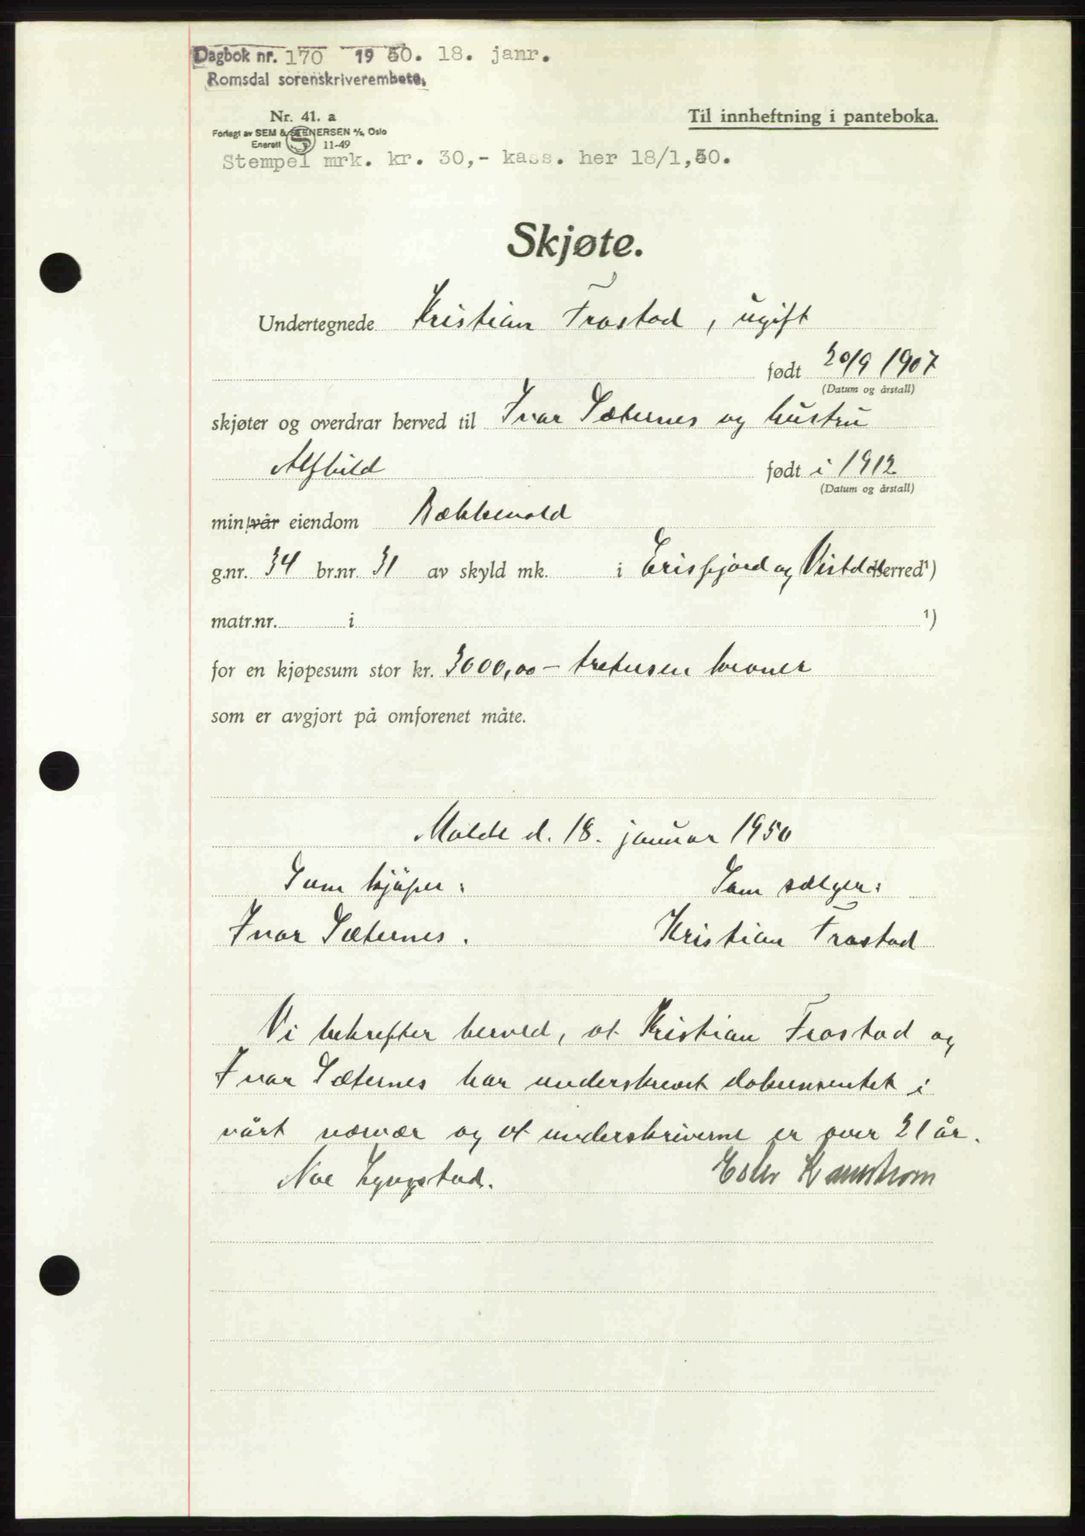 Dagbok nr. 170 1950. 18. janr.
Romsdal sorenskriverembete,
Nr. 41. a
Til innheftning i panteboka.
Forlagt av SEM & STENERSEN A/S, Oslo
Enerett 11-49
Stempel mrk. kr. 30,- kass. her 18/1,50.
Skjøte.
Undertegnede Kristian Frostad, ugift
født 20/9 1907
(Datum og årstall)
skjøter og overdrar herved til Ivar Sæternes og hustru
Alfhild født i 1912
(Datum og årstall)
min/vår eiendom Bækkevold
g.nr. 34 br.nr. 31 av skyld mk. i Erisfjord og Vistdal herred¹)
matr.nr. i ¹)
for en kjøpesum stor kr. 3000,00 – tretusen kroner
som er avgjort på omforenet måte.
Molde d. 18. januar 1950
Som kjøper: Som sælger:
Ivar Sæternes. Kristian Frostad
Vi bekrefter herved, at Kristian Frostad og
Ivar Sæternes har underskrevet dokumentet i
vårt nærvær og at underskriverne er over 21 år.
Noe Lyngstad.